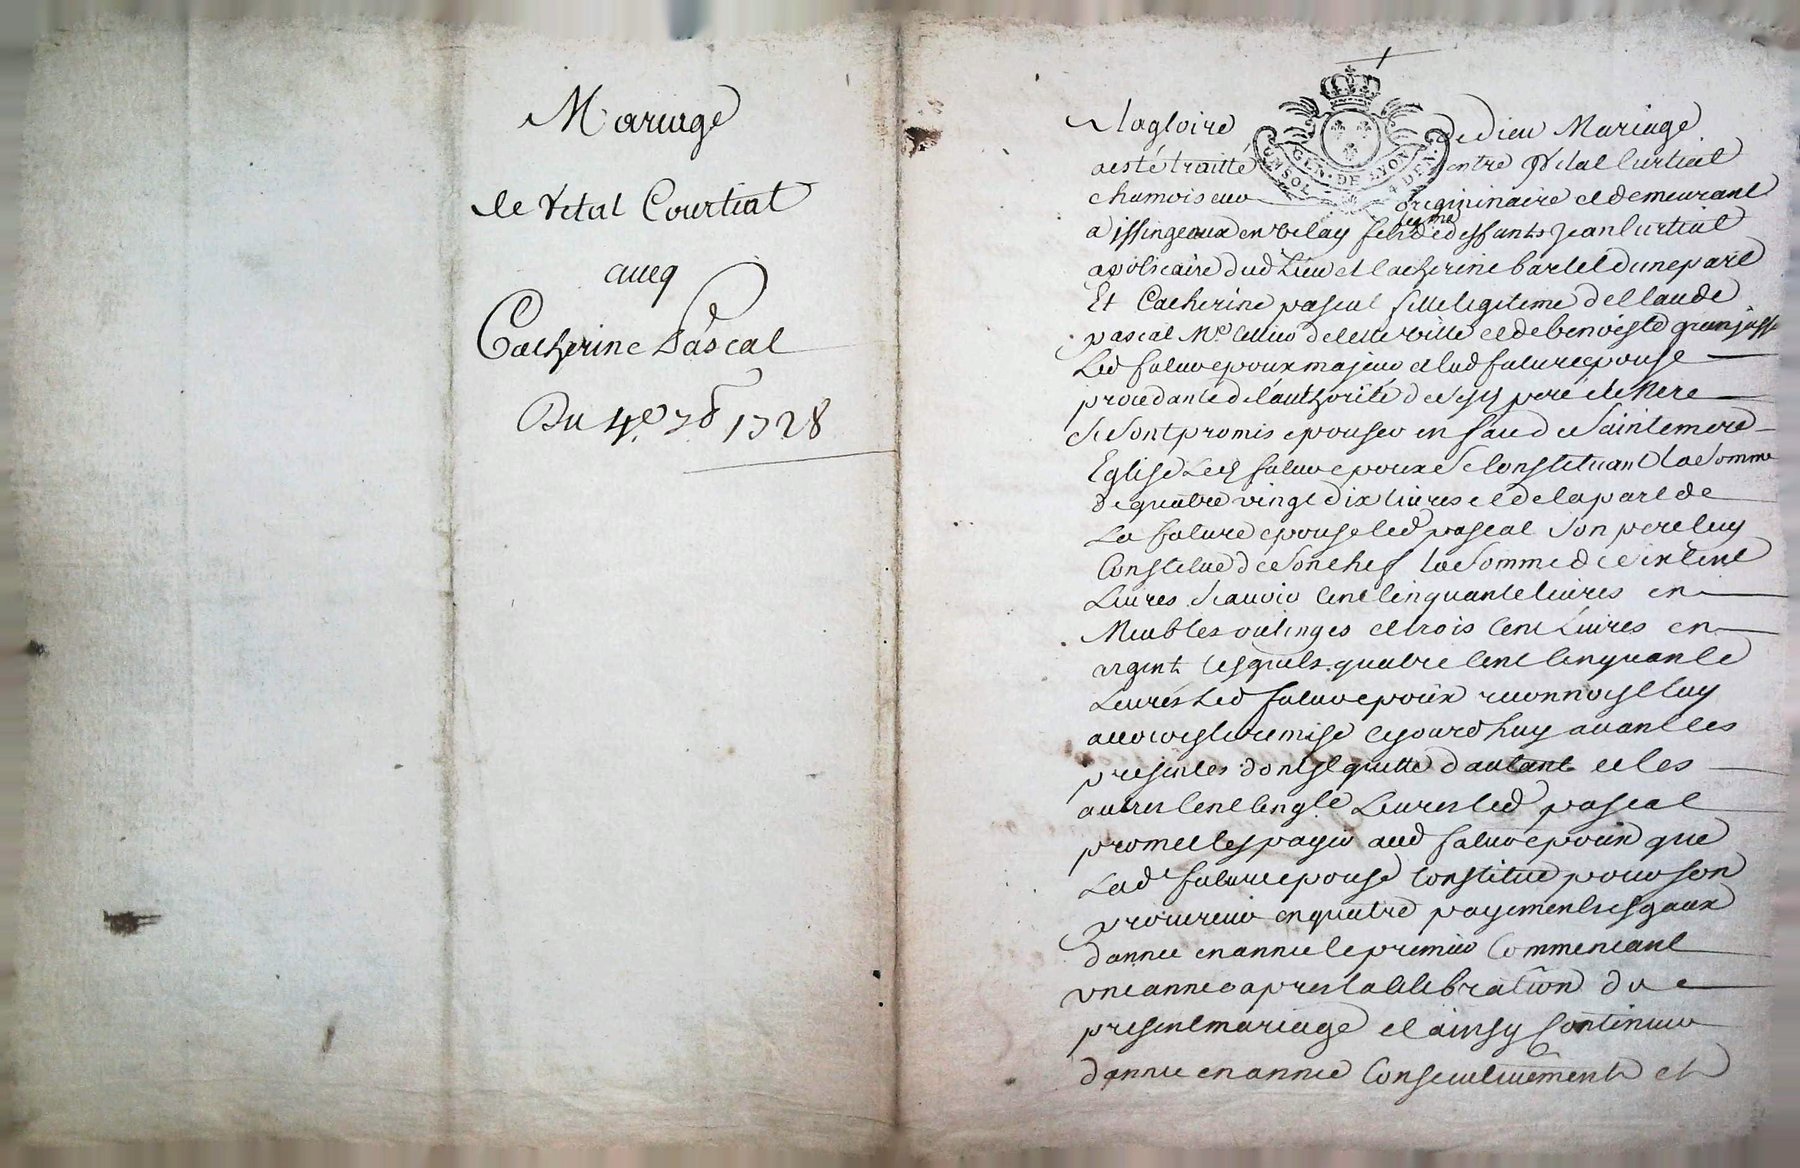 Mariage
de Vital Courtial
avecq
Catherine Pascal
Du 4e 7bre 1728
A la gloire de Dieu Mariage
GEN. DE LYON
UN SOL 4 DEN.
a esté traitté entre Vital Curtial
chamoiseur originaire et demeurant
a issingeaux en Velay fils legme de deffunts Jean Curtial
apoticaire dud Lieu et Catherine bartel d'une part
Et Catherine pascal fille legitime de Claude
pascal Mre de cette ville et de benoiste
Led futur epoux majeur et lad future epouse
procedante de l'authorité de sesd pere et Mere
Se sont promis epouser en face de Sainte mere
Eglise Led futur epoux Se Constituant la Somme
de quatre vingt dix livres et de la part de
La future epouse led pascal Son pere luy
Constitue de Son chef la Somme de Six Cent
Livres Scavoir Cent Cinquante livres en
Meubles ou linges et trois Cent Livres en
argent lesquels quatre Cent Cinquante
Livres Led futur epoux reconnoist luy
avoir esté remise cejourdhuy avant les
presentes dont il quitte d'autant et les
autres Cent Cinqte Livres led pascal
promet les payer aud futur epoux que
Lad future epouse Constitue pour son
procureur en quatre payements esgaux
d'année en année le premier Commencant
une année apres la celebration du
present mariage et ainsy Continuer
d'année en année Consecutivement et